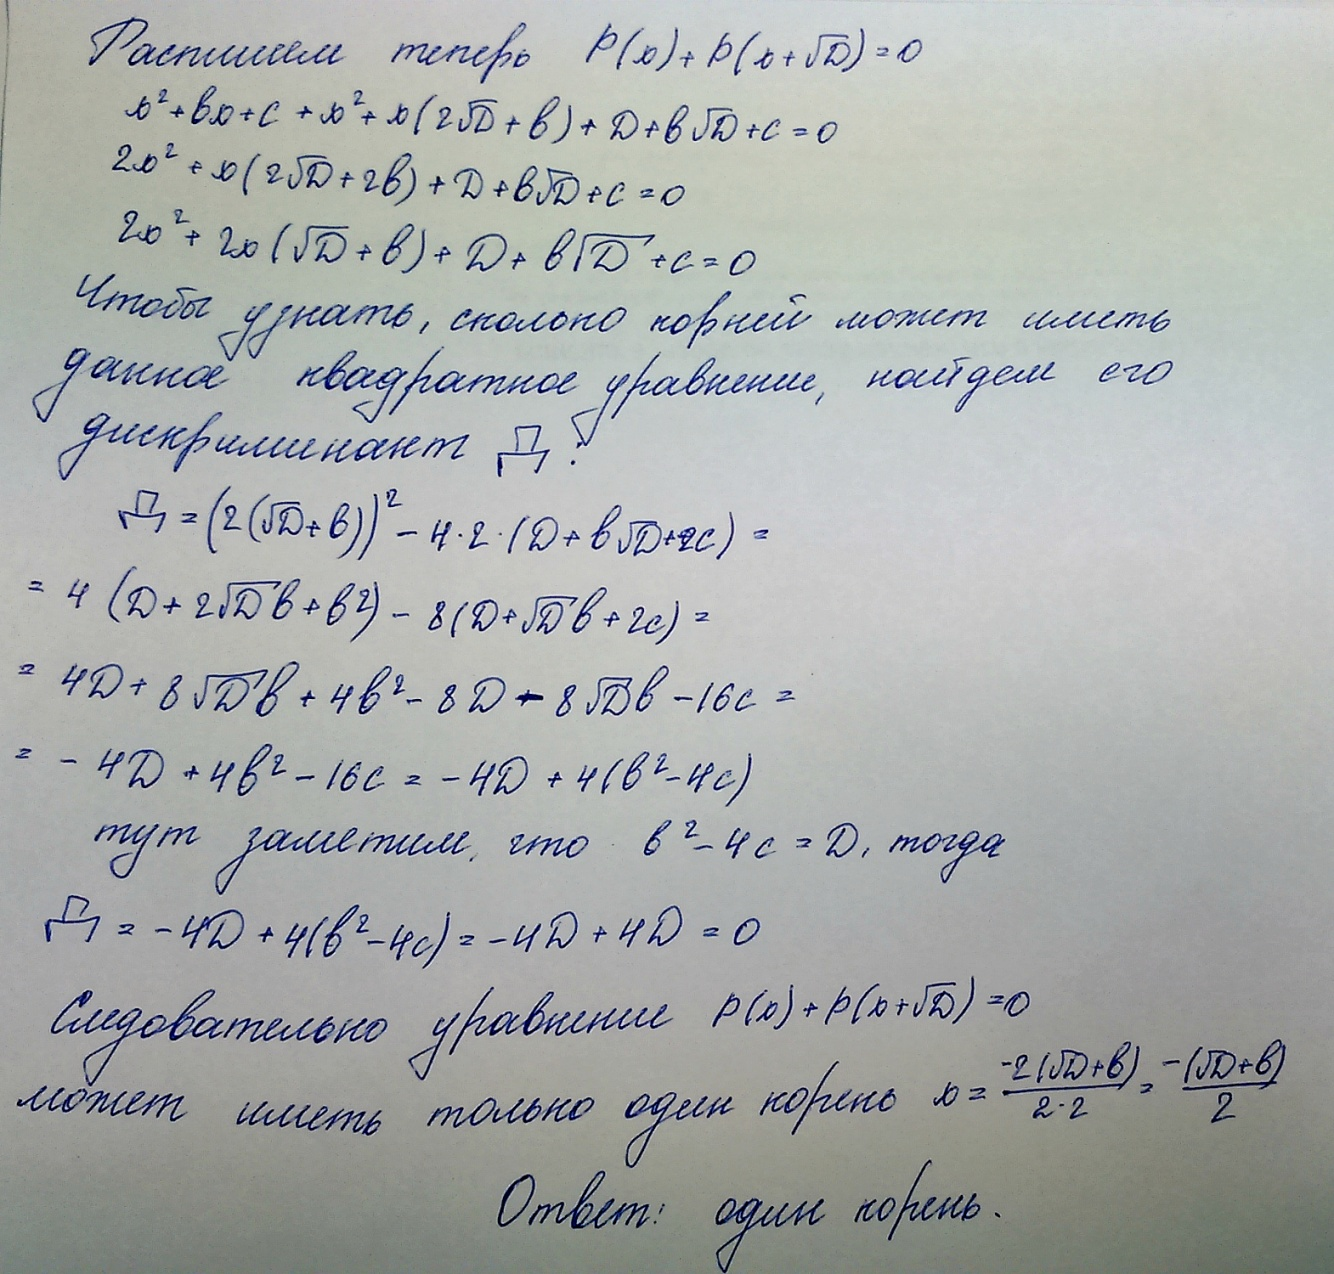 Распишем теперь P(x)+P(x+√D)=0
x²+bx+c+x²+x(2√D+b)+D+b√D+c=0
2x²+x(2√D+2b)+D+b√D+c=0
2x²+2x(√D+b)+D+b√D+c=0
Чтобы узнать, сколько корней может иметь
данное квадратное уравнение, найдем его
дискриминант Д:
Д=(2(√D+b))²-4·2·(D+b√D+2c)=
=4(D+2√Db+b²)-8(D+√Db+2c)=
=4D+8√Db+4b²-8D-8√Db-16c=
=-4D+4b²-16c=-4D+4(b²-4c)
тут заметим, что b²-4c=D, тогда
Д=-4D+4(b²-4c)=-4D+4D=0
Следовательно уравнение P(x)+P(x+√D)=0
может иметь только один корень x=-2(√D+b)/2·2=-(√D+b)/2
Ответ: один корень.